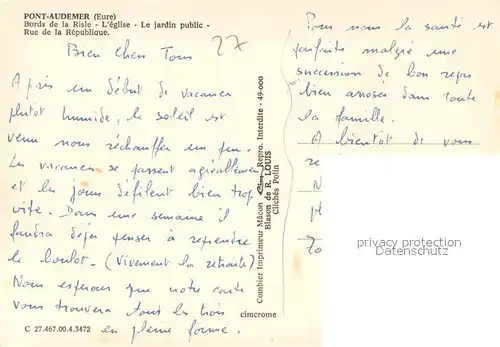 PONT-AUDEMER (Eure)
Bords de la Risle - L'église - Le jardin public -
Rue de la République.
27
Bien Chers Tous
Après un début de vacances
plutot humide, le soleil est
venu nous réchauffer un peu.
Les vacances se passent agréablement
et les jours défilent bien trop
vite. Dans une semaine il
faudra deja penser à reprendre
le boulot - (Vivement la retraite)
Nous esperons que notre carte
vous trouvera tous les trois
en pleine forme.
C 27.467.00.4.3472
Combier Imprimeur Mâcon Repro. Interdite - 49-000
Blason de R. LOUIS
Clichés Polin
cimcrome
Pour nous la santé est
parfaite malgré une
succession de bon repas
bien arrosés dans toute
la famille.
A bientôt de vous
re
N
pl
privacy protection
by AnimalDesk.com